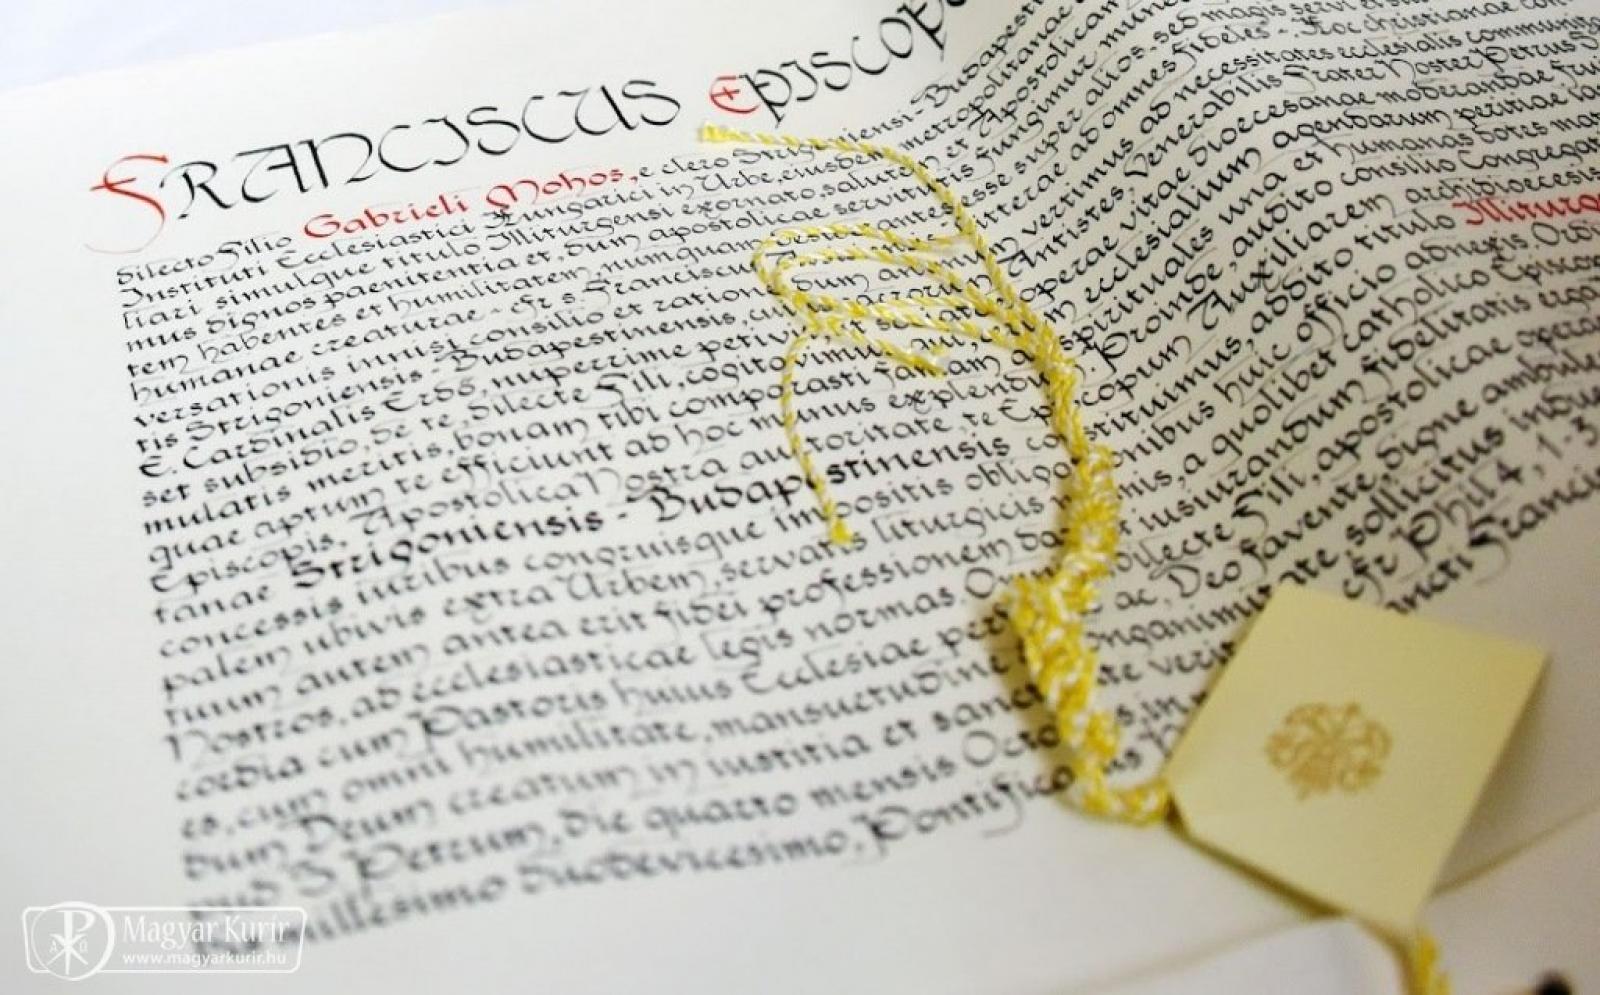 FRANCISCUS EPISCOP
dilecto Filio Gabrieli Mohos, e clero Strigoniensi-Budapesti
Instituti Ecclesiastici Hungarici in Urbe, eiusdem metropolitanae
liari simulque titulo Illiturgensi exornato, salutem et Apostolicam
mus dignos paenitentia et, dum apostolicae servitutis fungimur mune
tem habentes et humilitatem, numquam esse super alios, sed magis servi et
humanae creaturae - cfr s. Franciscus litterae ad omnes fideles -. Hoc christianae con
versationis innisi consilio et ratione dum animum vertimus ad necessitates ecclesialis communita
tis Strigoniensis - Budapestinensis, Antistes, Venerabilis Frater Noster Petrus S
E. Cardinalis Erdő, nuperrime petivit operae vitae dioecesanae moderandae frui
set subsidio, de te, dilecte Fili, cogitavimus, qui ecclesialium agendarum peritiae
mulatis meritis, bonam tibi comparasti famam spirituales una et humanas dotes
quae aptum te efficiunt ad hoc munus explendum. Proinde, audito consilio Congregat
Episcopis, Apostolica Nostra auctoritate, te Episcopum Auxiliarem archidioecesis
tanae Strigoniensis - Budapestinensis constituimus, addito titulo Illiturg
concessis iuribus congruisque impositis obligationibus huic officio adnexis. Ordi
palem ubivis extra Urbem, servatis liturgicis normis, a quolibet catholico Episco
tuum autem antea erit fidei professionem iusiurandum fidelitatis erga
Nostros, ad ecclesiasticae legis normas. dilecte Fili, apostolicae
cordia cum Pastoris huius Ecclesiae ac, Deo favente, digne ambules
es, cum omni humilitate, mansuetudine sollicitus
dum Deum creatum in iustitia et sanct cfr Phil 4, 1-3
pud S. Petrum, die quarto mensis Octo in ancti Francis
millesimo duodevicesimo, Pontifica
Magyar Kurír
www.magyarkurir.hu